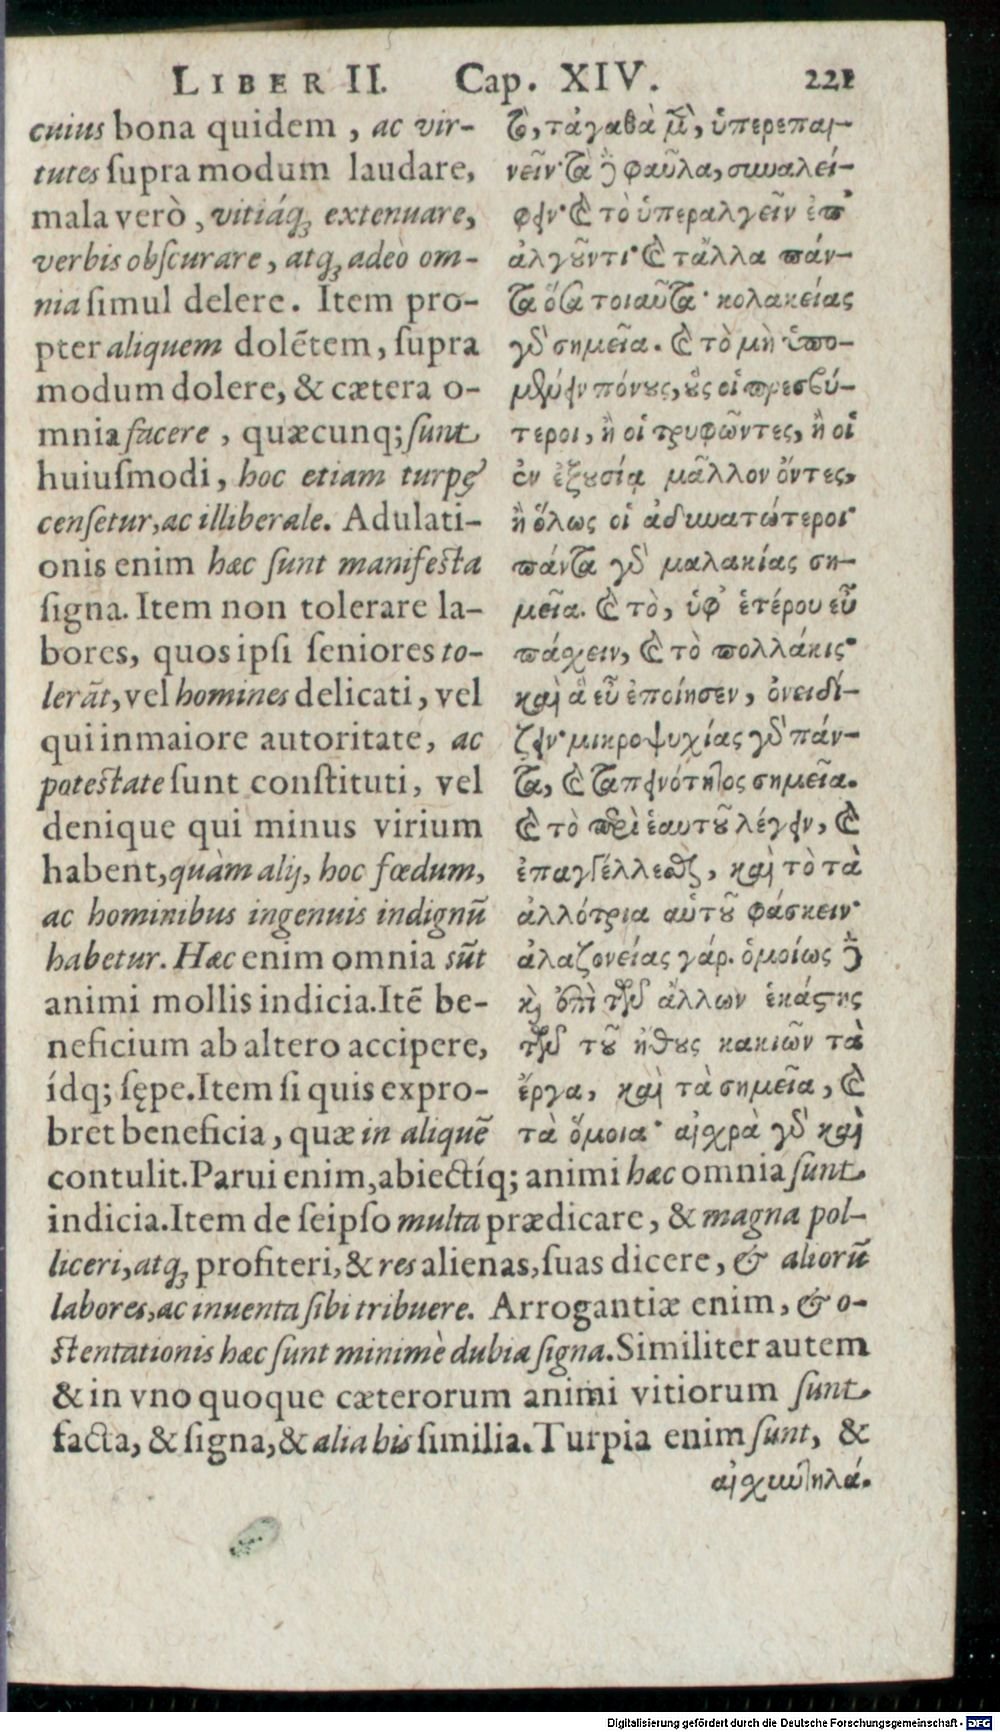 LIBER II. Cap. XIV. 221
cuius bona quidem, ac vir-
tutes ſupra modum laudare,
mala verò, vitiáq; extenuare,
verbis obſcurare, atq; adeò om-
nia ſimul delere. Item pro-
pter aliquem dolẽtem, ſupra
modum dolere, & cætera o-
mnia facere, quæcunq; ſunt
huiuſmodi, hoc etiam turpę
cenſetur, ac illiberale. Adulati-
onis enim hæc ſunt manifeſta
ſigna. Item non tolerare la-
bores, quos ipſi ſeniores to-
lerãt, vel homines delicati, vel
qui in maiore autoritate, ac
poteſtate ſunt conſtituti, vel
denique qui minus virium
habent, quàm alij, hoc fœdum,
ac hominibus ingenuis indignũ
habetur. Hæc enim omnia sũt
animi mollis indicia. Itẽ be-
neficium ab altero accipere,
ídq; ſępe. Item ſi quis expro-
bret beneficia, quæ in aliquẽ
τὸ, τἀγαθὰ μ̃, ὑπερεπαι-
νεῖν· τὰ ȣ̓ φαῦλα, συναλεί-
φειν· καὶ τὸ ὑπεραλγεῖν ἐπ'
ἀλγοῦντι· καὶ τἄλλα πάν-
τα ὅσα τοιαῦτα· κολακείας
γὸ σημεῖα. καὶ τὸ μὴ ὑπο-
μένειν πόνους, οὓς οἱ πρεσβύ-
τεροι, ἢ οἱ τρυφῶντες, ἢ οἱ
ἐν ἐξουσίᾳ μᾶλλον ὄντες,
ἢ ὅλως οἱ ἀδυνατώτεροι·
πάντα γὸ μαλακίας ση-
μεῖα. καὶ τὸ, ὑφ' ἑτέρου εὖ
πάσχειν, καὶ τὸ πολλάκις·
καὶ ἃ εὖ ἐποίησεν, ὀνειδί-
ζειν· μικροψυχίας γὸ πάν-
τα, καὶ ταπεινότητος σημεῖα.
καὶ τὸ περὶ ἑαυτοῦ λέγειν, καὶ
ἐπαγγέλλεσθαι, καὶ τὸ τὰ
ἀλλότρια αὑτοῦ φάσκειν·
ἀλαζονείας γάρ. ὁμοίως δὲ
καὶ ἐπὶ τῶν ἄλλων ἑκάστης
τῶν τοῦ ἤθους κακιῶν τὰ
ἔργα, καὶ τὰ σημεῖα, καὶ
τὰ ὅμοια· αἰσχρὰ γὸ καὶ
contulit. Parui enim, abiectíq; animi hæc omnia ſunt
indicia. Item de ſeipſo multa prædicare, & magna pol-
liceri, atq; profiteri, & res alienas, ſuas dicere, & aliorũ
labores, ac inuenta ſibi tribuere. Arrogantiæ enim, & o-
ſtentationis hæc ſunt minimè dubia ſigna. Similiter autem
& in vno quoque cæterorum animi vitiorum ſunt
facta, & ſigna, & alia his ſimilia. Turpia enim ſunt, &
αἰσχυντηλά.
Digitalisierung gefördert durch die Deutsche Forschungsgemeinschaft - DFG